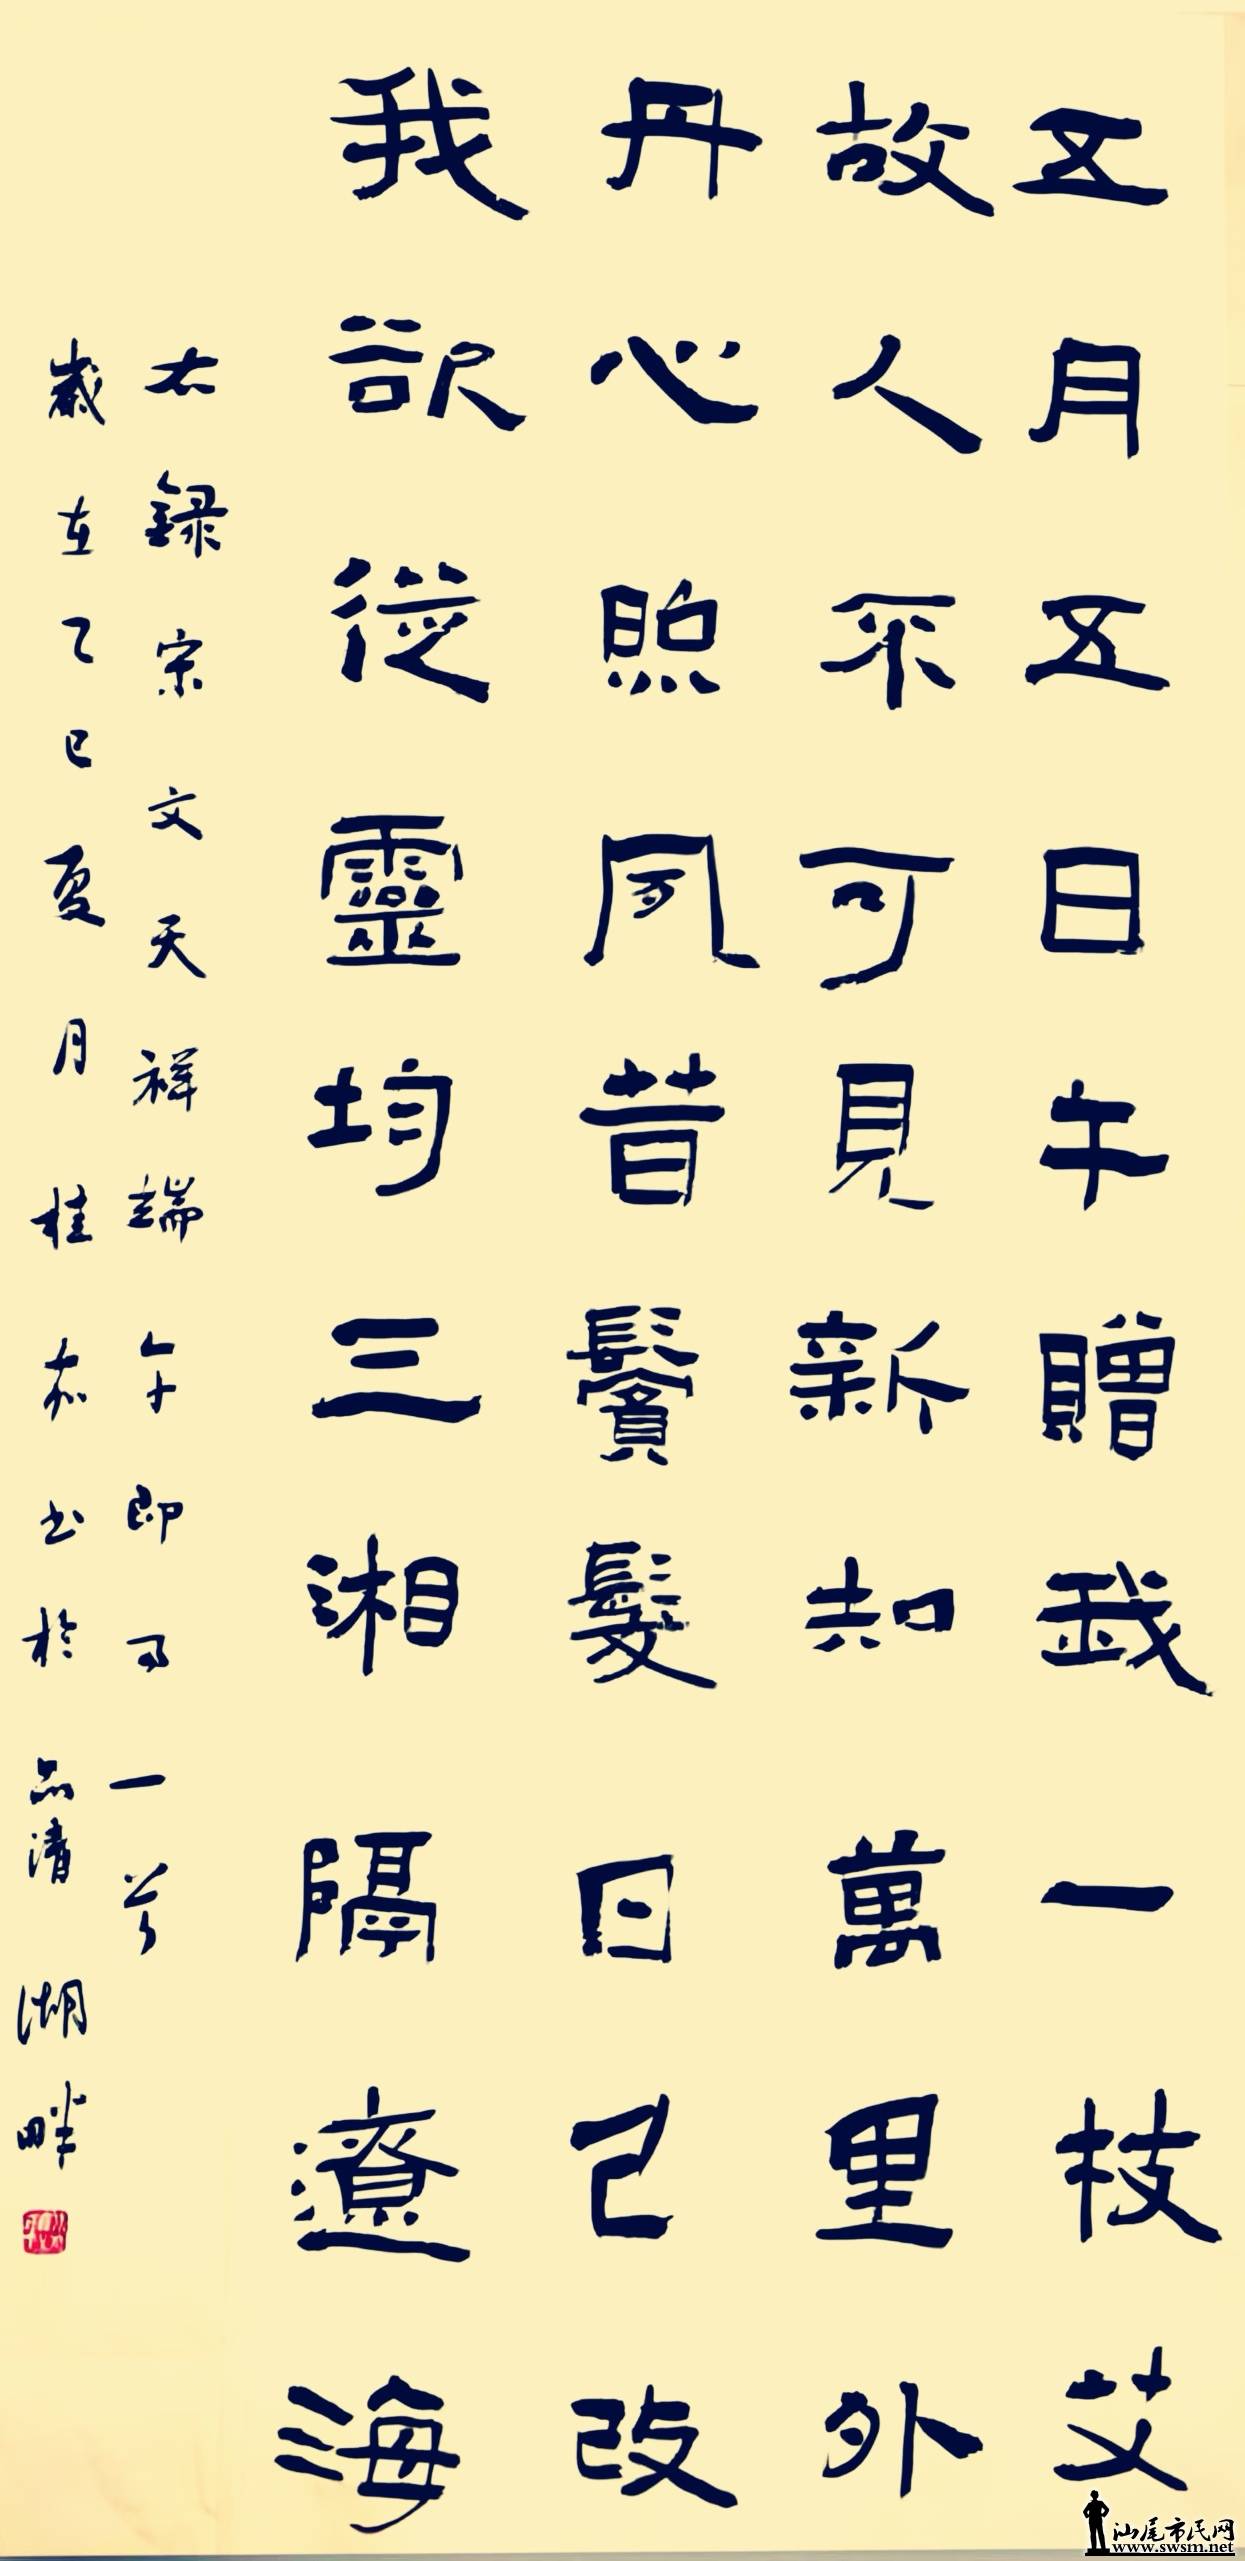 五月五日午贈我一枝艾
故人不可見新知萬里外
丹心照夙昔鬢髮日已改
我欲從靈均三湘隔遼海
右録宋文天祥端午即事一首
歲在乙巳夏月桂书於品清湖畔
汕尾市民网
www.swsm.net